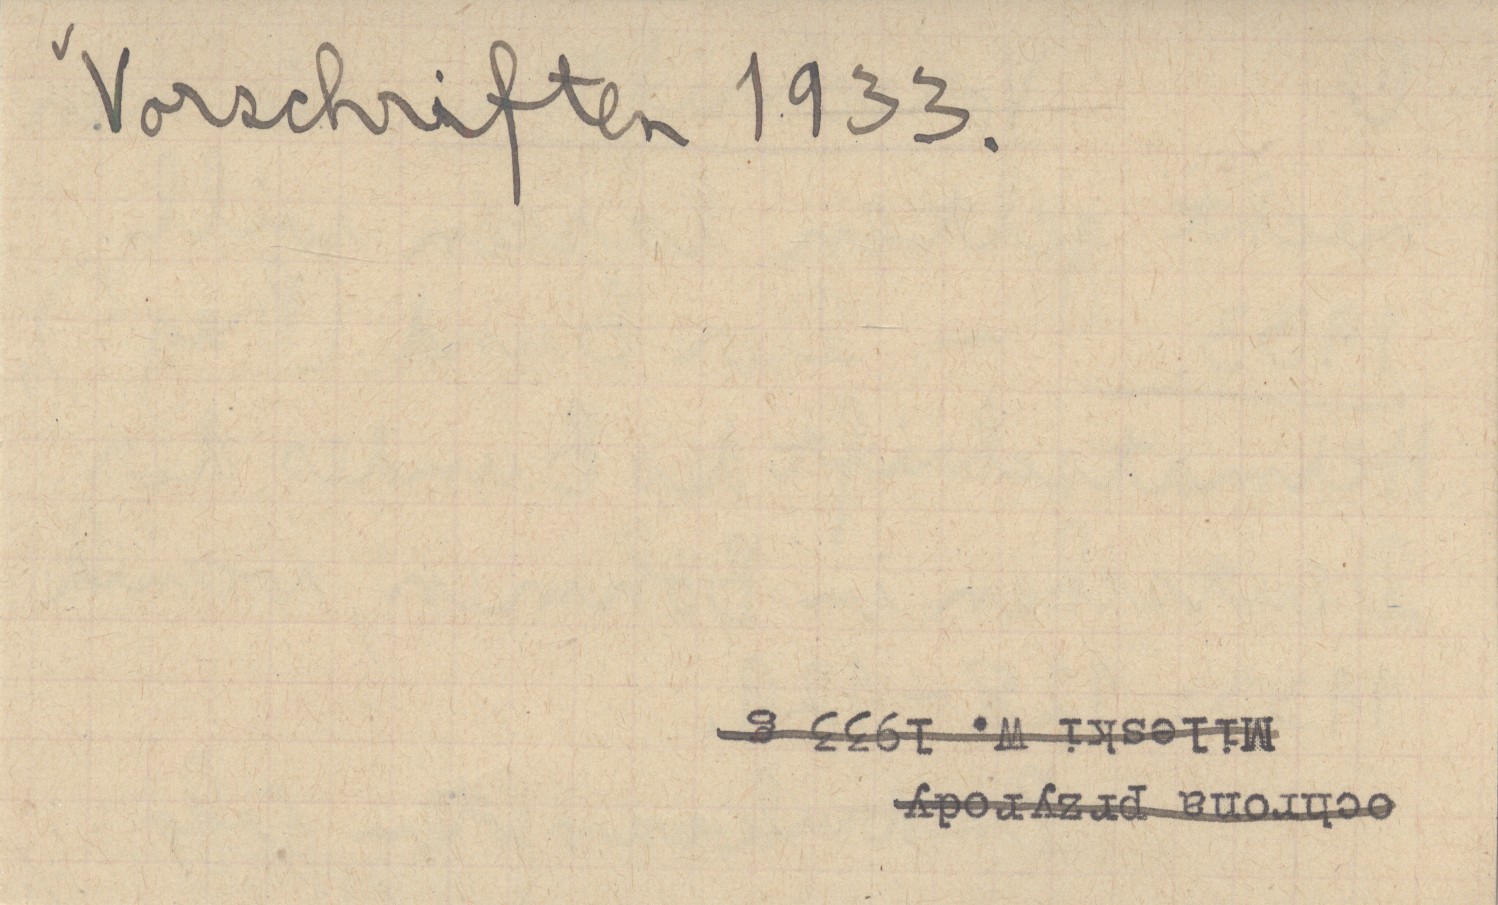 Vorschriften 1933.
ochrona przyrody
Mileski W. 1933 g